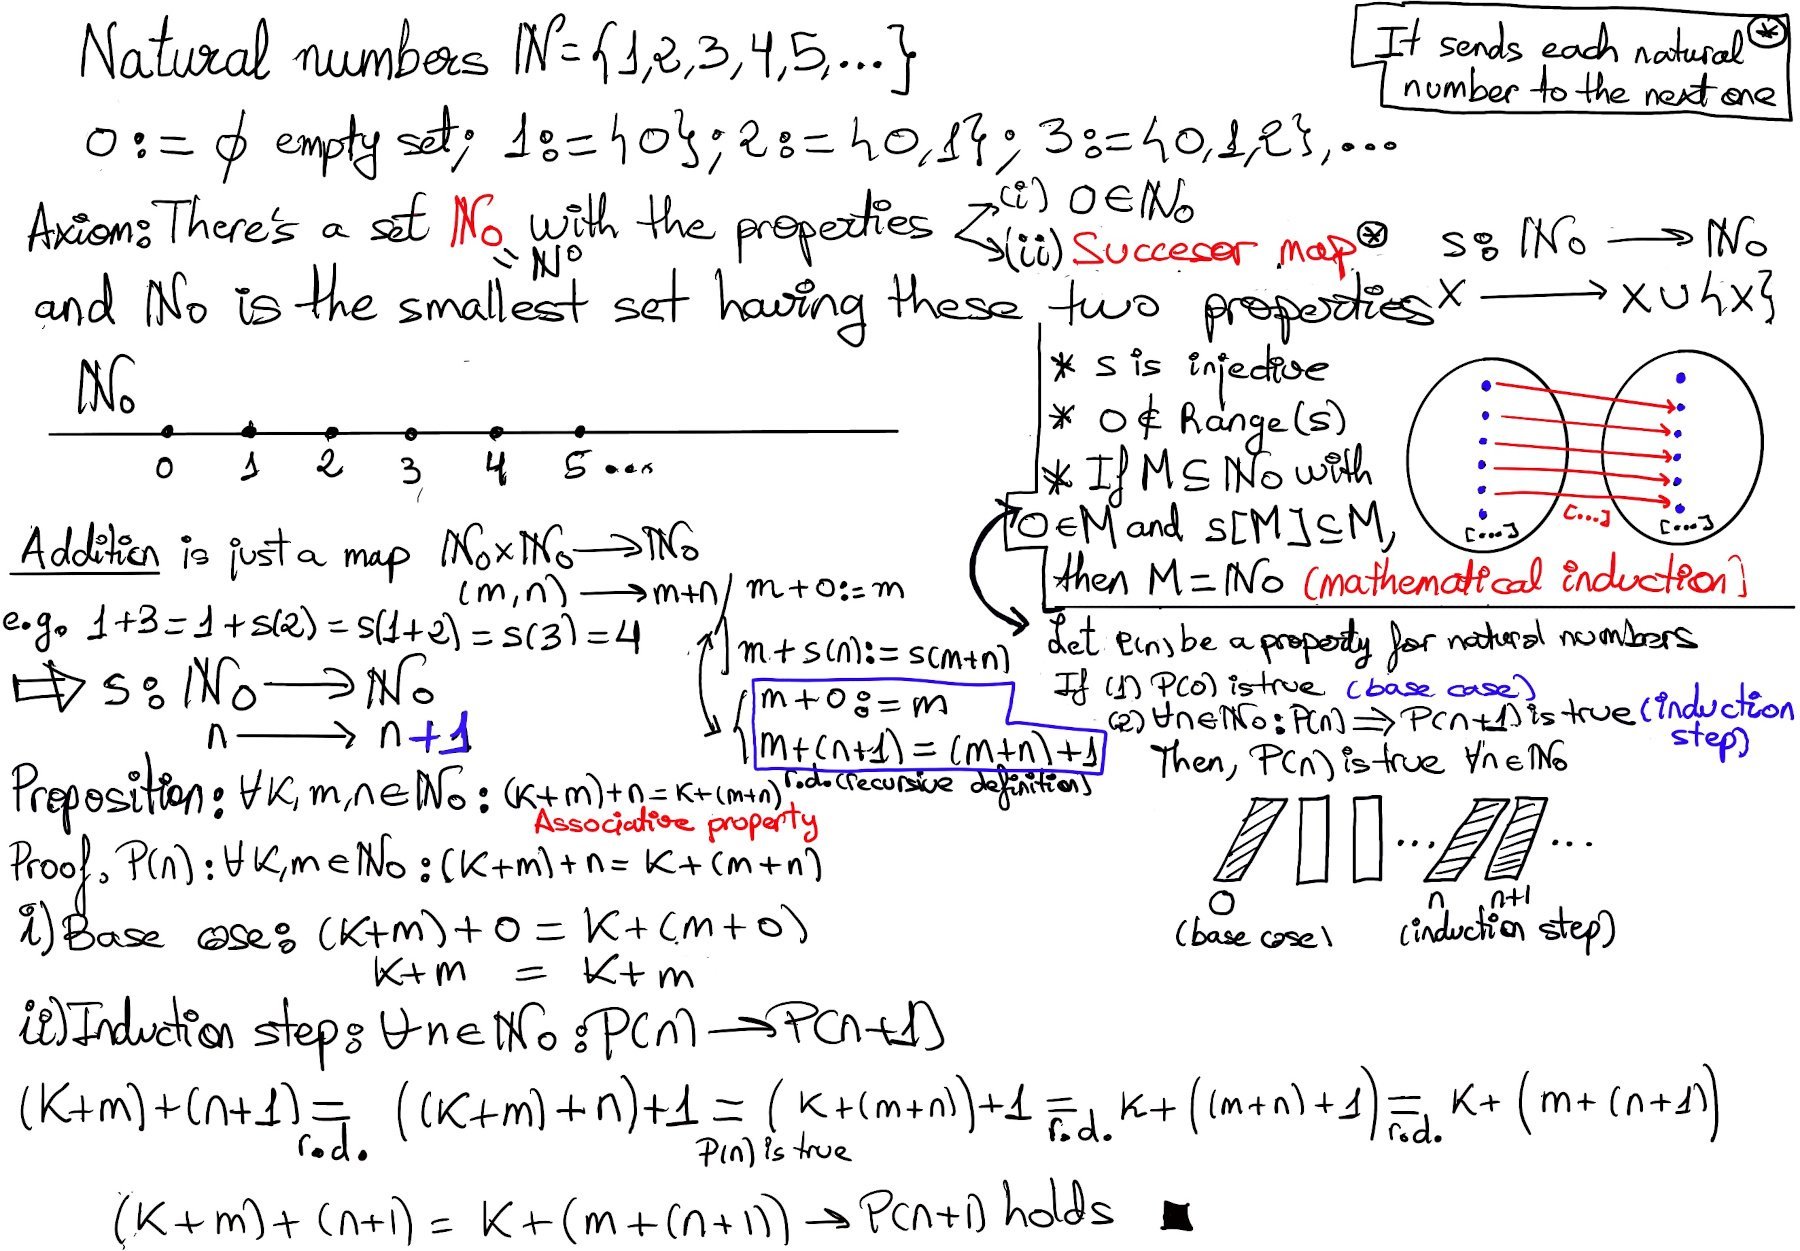 Natural numbers ℕ={1,2,3,4,5,...}
It sends each natural ⊛
number to the next one
0:=∅ empty set; 1:={0}; 2:={0,1}; 3:={0,1,2},...
Axiom: There's a set ℕ₀ with the properties
=ℕ⁰
(i) 0∈ℕ₀
(ii) Succesor map ⊛ s: ℕ₀ → ℕ₀
x → x∪{x}
and ℕ₀ is the smallest set having these two properties
ℕ₀
0 1 2 3 4 5 ...
* s is injective
* 0∉Range(s)
* If M⊆ℕ₀ with
0∈M and s[M]⊆M,
then M=ℕ₀ (mathematical induction)
[...] [...] [...]
Addition is just a map ℕ₀×ℕ₀→ℕ₀
(m,n)→m+n / m+0:=m
m+s(n):=s(m+n)
e.g. 1+3=1+s(2)=s(1+2)=s(3)=4
⇒ s: ℕ₀→ℕ₀
n→n+1
m+0:=m
m+(n+1)=(m+n)+1
r.d.(recursive definition)
Let P(n) be a property for natural numbers
If (1) P(0) is true (base case)
(2) ∀n∈ℕ₀: P(n)⇒P(n+1) is true (induction
step)
Then, P(n) is true ∀n∈ℕ₀
... ...
0 n n+1
(base case) (induction step)
Proposition: ∀K,m,n∈ℕ₀: (K+m)+n=K+(m+n)
Associative property
Proof. P(n): ∀K,m∈ℕ₀: (K+m)+n=K+(m+n)
i) Base case: (K+m)+0=K+(m+0)
K+m = K+m
ii) Induction step: ∀n∈ℕ₀: P(n)→P(n+1)
(K+m)+(n+1) = ((K+m)+n)+1 = (K+(m+n))+1 = K+((m+n)+1) = K+(m+(n+1))
r.d. P(n) is true r.d. r.d.
(K+m)+(n+1)=K+(m+(n+1))→P(n+1) holds ■